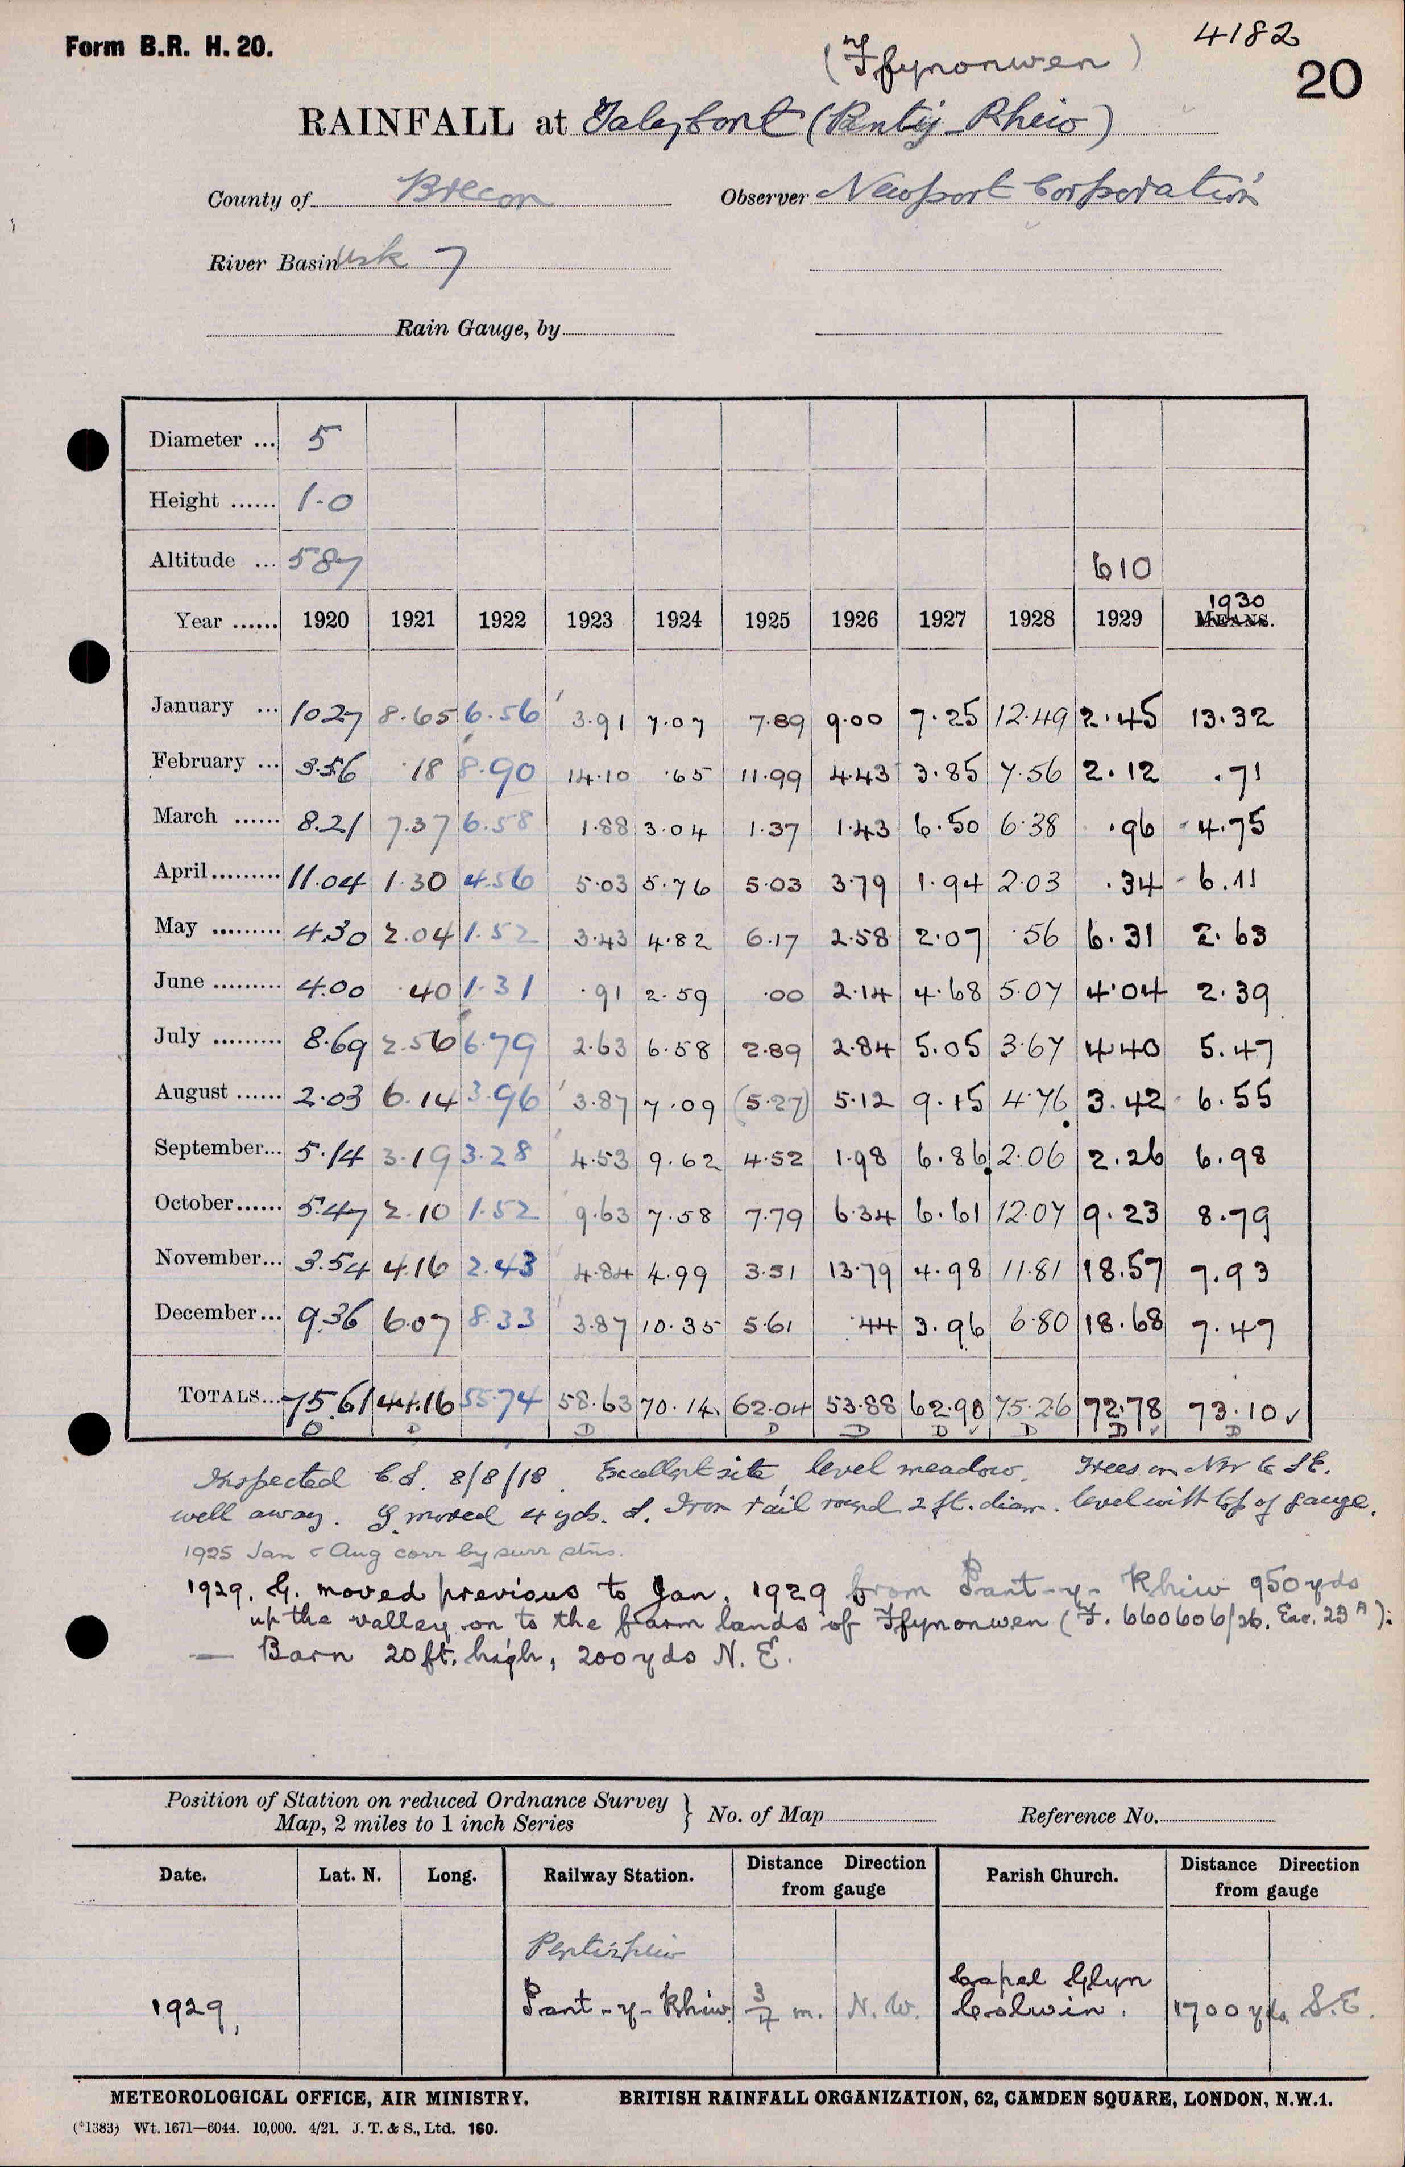 Form B.R. H. 20.
4182
20
(Ffynonwen)
RAINFALL at Talybont (Pantij-Rhiw)
County of Brecon Observer Newport Corporation
River Basin Usk 7
Rain Gauge, by
Diameter ... 5
Height ...... 1-0
Altitude ... 587 610
Year ...... 1920 1921 1922 1923 1924 1925 1926 1927 1928 1929 1930 MEANS.
January ... 10.27 8.65 6.56 3.91 7.07 7.89 9.00 7.25 12.49 2.45 13.32
February ... 3.56 .18 8.90 14.10 .65 11.99 4.43 3.85 7.56 2.12 .71
March ...... 8.21 7.37 6.58 1.88 3.04 1.37 1.43 6.50 6.38 .96 4.75
April ......... 11.04 1.30 4.56 5.03 5.76 5.03 3.79 1.94 2.03 .34 6.11
May ......... 4.30 2.04 1.52 3.43 4.82 6.17 2.58 2.07 .56 6.31 2.63
June ......... 4.00 .40 1.31 .91 2.59 .00 2.14 4.68 5.07 4.04 2.39
July ......... 8.69 2.56 6.79 2.63 6.58 2.89 2.84 5.05 3.67 4.40 5.47
August ...... 2.03 6.14 3.96 3.87 7.09 (5.27) 5.12 9.15 4.76 3.42 6.55
September... 5.14 3.19 3.28 4.53 9.62 4.52 1.98 6.86 2.06 2.26 6.98
October ...... 5.47 2.10 1.52 9.63 7.58 7.79 6.34 6.61 12.07 9.23 8.79
November... 3.54 4.16 2.43 4.84 4.99 3.51 13.79 4.98 11.81 18.57 7.93
December ... 9.36 6.07 8.33 3.87 10.35 5.61 .44 3.96 6.80 18.68 7.47
TOTALS... 75.61 44.16 55.74 58.63 70.14 62.04 53.88 62.90 75.26 72.78 73.10 ✓
D D D D D D D D D
Inspected C.S. 8/8/18. Excellent site, level meadow. Trees on NW to SE.
well away. G. moved 4 yds. S. Iron rail round 2 ft. diam. level with top of gauge.
1925 Jan & Aug corr by surr stns.
1929. G. moved previous to Jan. 1929 from Pant-y-Rhiw 950 yds
up the valley on to the farm lands of Ffynonwen (F. 660606/26. Enc. 23A):
— Barn 20 ft. high, 200 yds N. E.
Position of Station on reduced Ordnance Survey Map, 2 miles to 1 inch Series } No. of Map Reference No.
Date. Lat. N. Long. Railway Station. Distance Direction from gauge Parish Church. Distance Direction from gauge
Pentirhiw
1929, Pant-y-Rhiw 3/4 m. N.W. Capel Glyn Colwin. 1700 yds. S.E.
METEOROLOGICAL OFFICE, AIR MINISTRY. BRITISH RAINFALL ORGANIZATION, 62, CAMDEN SQUARE, LONDON, N.W.1.
(*1383) Wt. 1671—6044. 10,000. 4/21. J. T. & S., Ltd. 160.